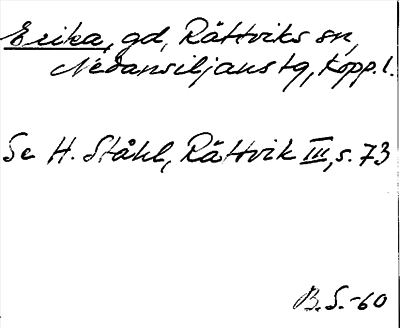 Erika, gd, Rättviks sn,
Nedansiljans tg, Kopp. l.
Se H. Ståhl, Rättvik III, s. 73
B.S.-60